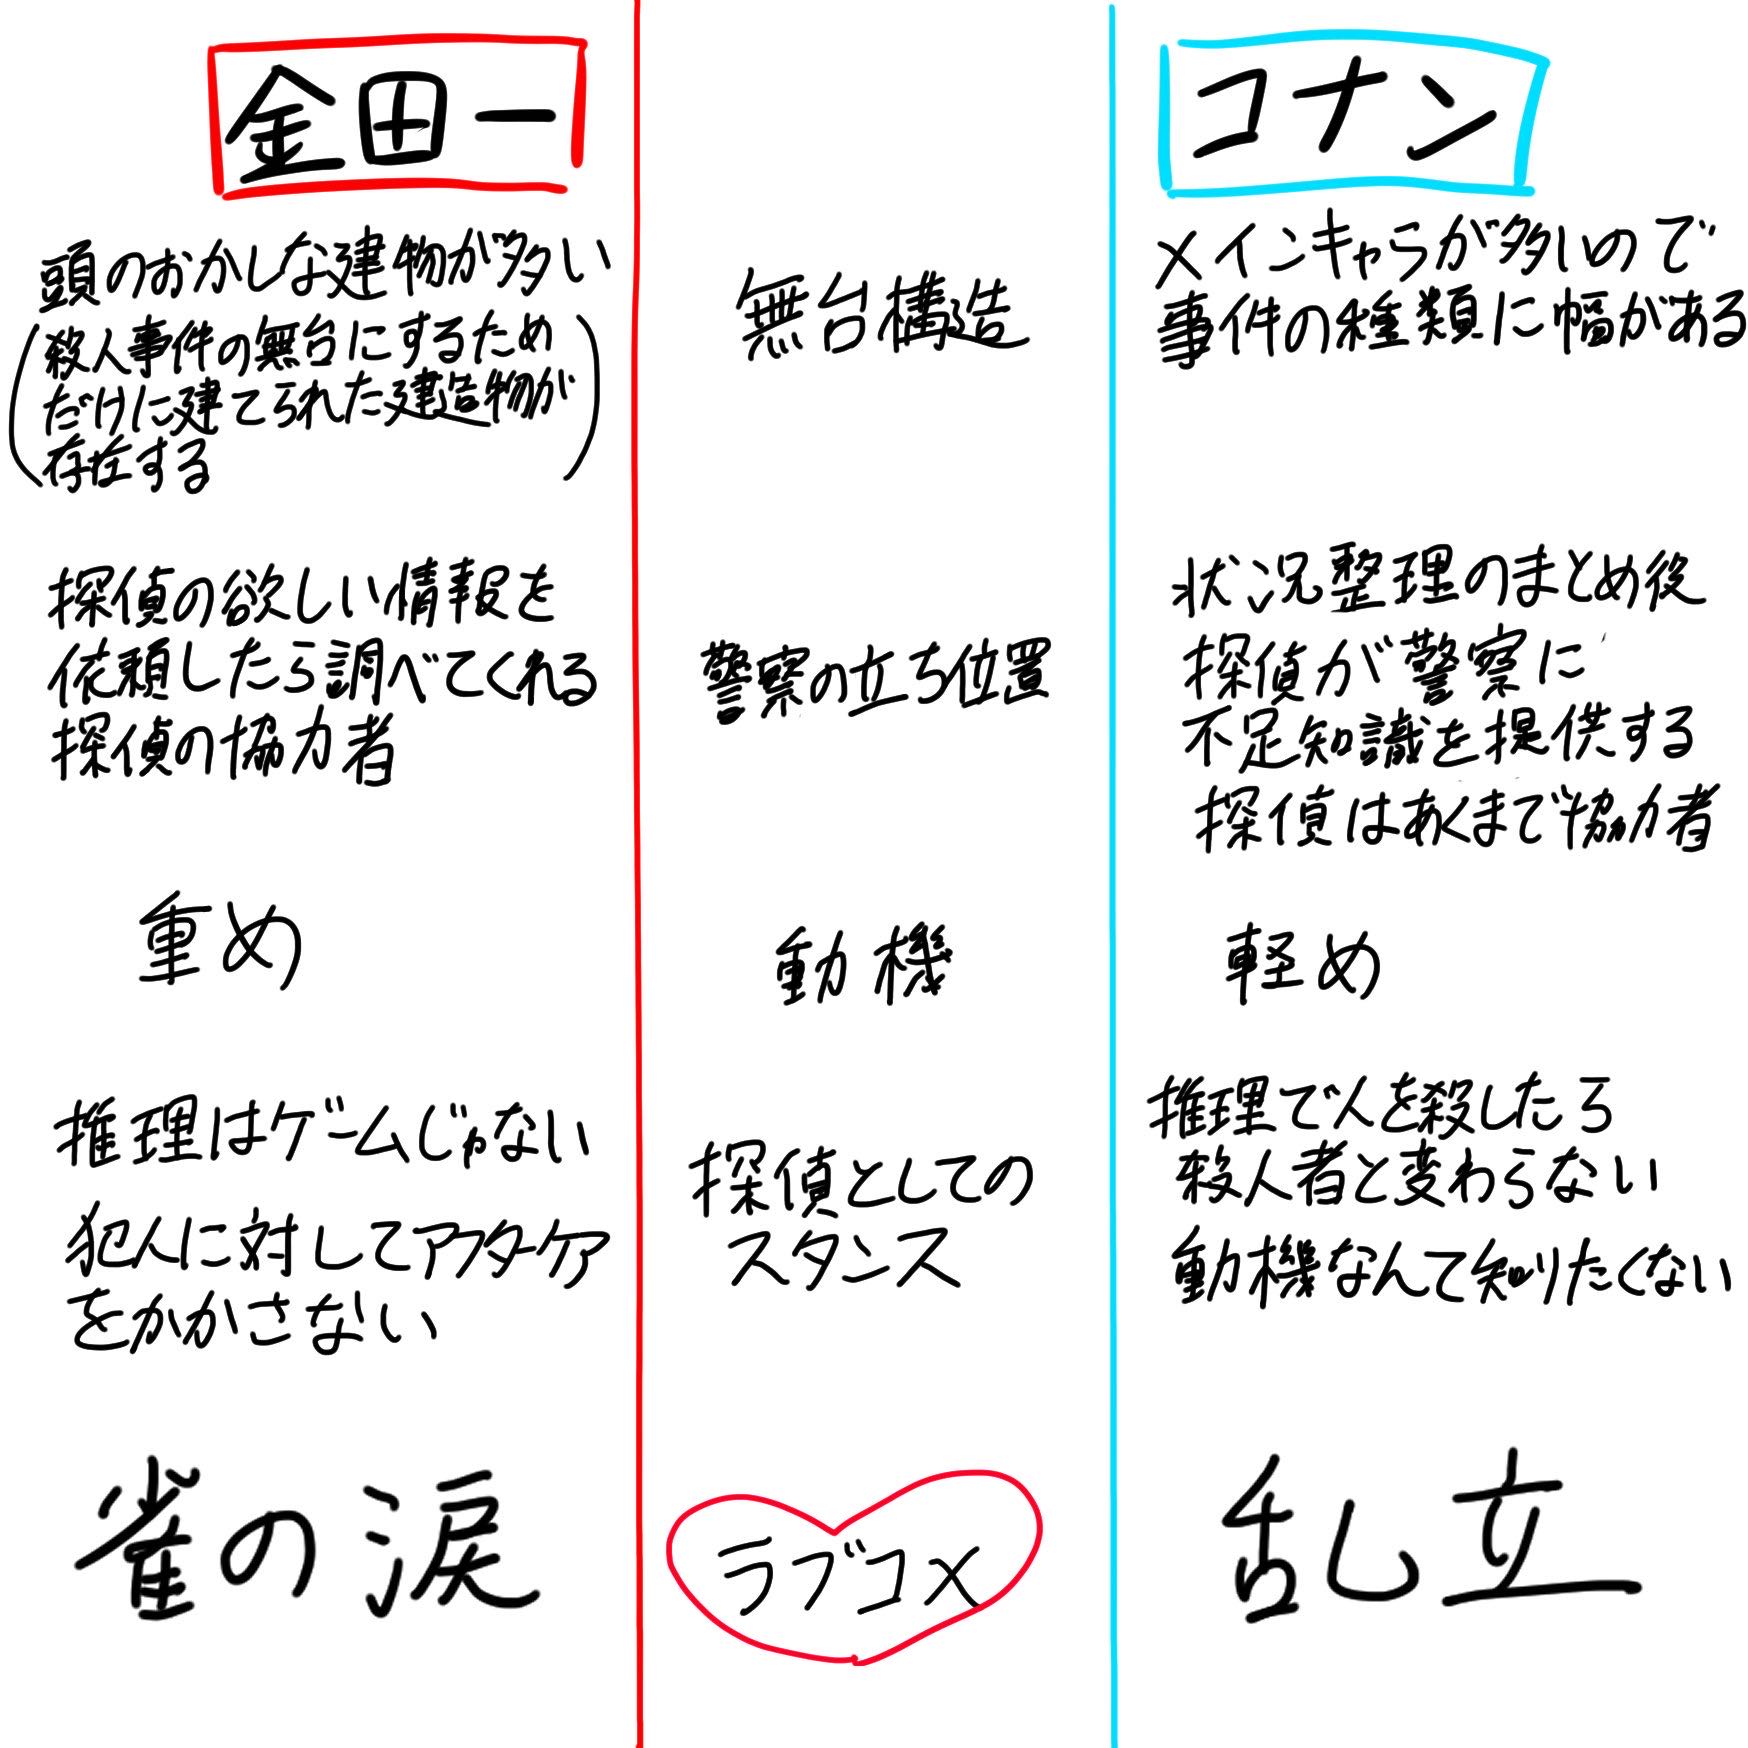 金田一
コナン
頭のおかしな建物が多い
(殺人事件の舞台にするため
だけに建てられた建造物が
存在する)
舞台構造
メインキャラが多いので
事件の種類に幅がある
探偵の欲しい情報を
依頼したら調べてくれる
探偵の協力者
警察の立ち位置
状況整理のまとめ後
探偵が警察に
不足知識を提供する
探偵はあくまで協力者
重め
動機
軽め
推理はゲームじゃない
犯人に対してアフターケア
をかかさない
探偵としての
スタンス
推理で人を殺したら
殺人者と変わらない
動機なんて知りたくない
雀の涙
ラブコメ
乱立